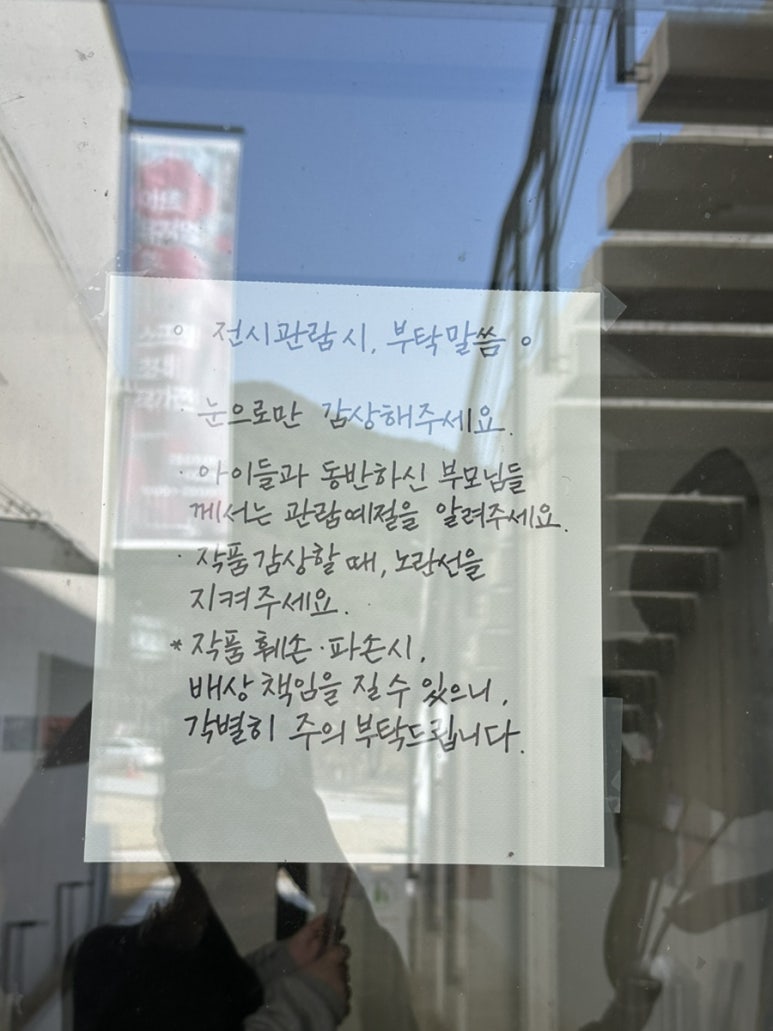 ◦ 전시관람 시, 부탁말씀 ◦
· 눈으로만 감상해주세요.
· 아이들과 동반하신 부모님들
께서는 관람예절을 알려주세요.
· 작품감상할 때, 노란선을
지켜주세요.
* 작품 훼손·파손시,
배상 책임을 질 수 있으니,
각별히 주의 부탁드립니다.